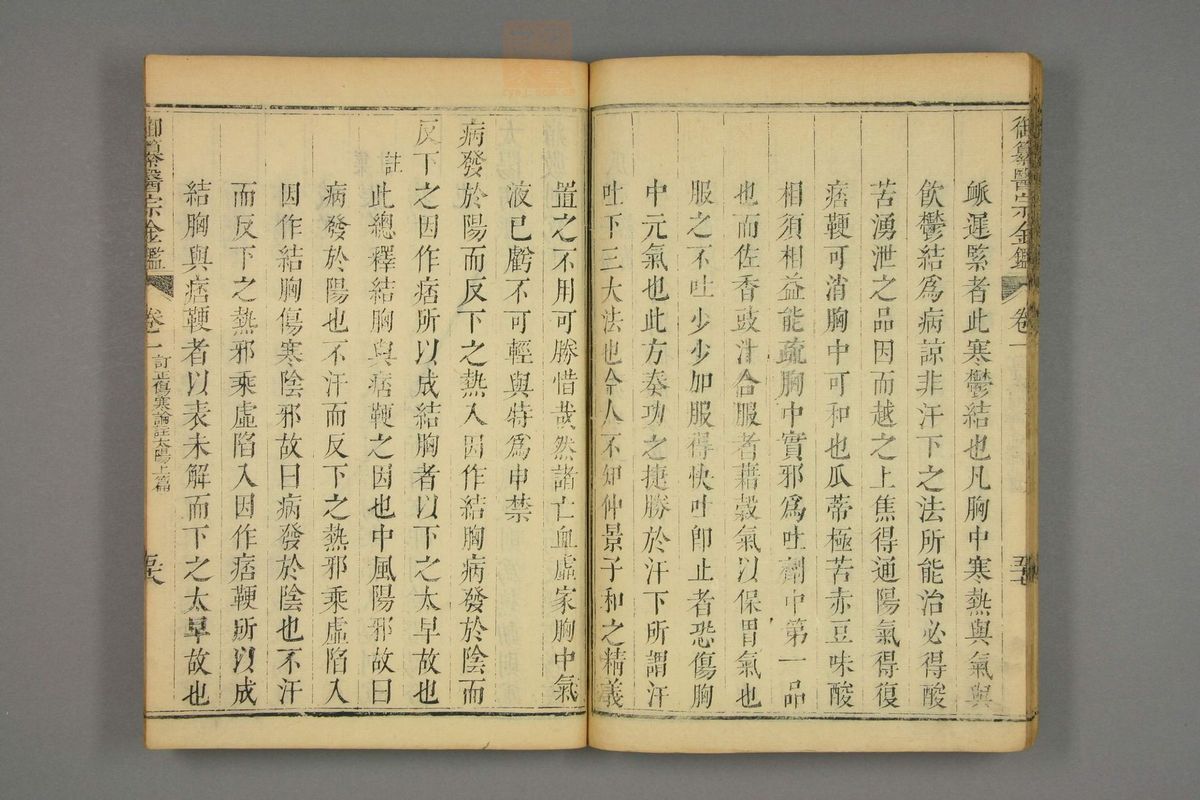 御纂醫宗金鑑
卷二
五七
脈遲緊者此寒鬱結也凡胸中寒熱與氣與
飲鬱結爲病諒非汗下之法所能治必得酸
苦湧泄之品因而越之上焦得通陽氣得復
痞鞕可消胸中可和也瓜蒂極苦赤豆味酸
相須相益能疏胸中實邪爲吐劑中第一品
也而佐香豉汁合服者藉穀氣以保胃氣也
服之不吐少少加服得快吐卽止者恐傷胸
中元氣也此方奏功之捷勝於汗下所謂汗
吐下三大法也今人不知仲景子和之精義
置之不用可勝惜哉然諸亡血虛家胸中氣
液已虧不可輕與特爲申禁
病發於陽而反下之熱入因作結胸病發於陰而
反下之因作痞所以成結胸者以下之太早故也
註
此總釋結胸與痞鞕之因也中風陽邪故曰
病發於陽也不汗而反下之熱邪乘虛陷入
因作結胸傷寒陰邪故曰病發於陰也不汗
而反下之熱邪乘虛陷入因作痞鞕所以成
結胸與痞鞕者以表未解而下之太早故也
御纂醫宗金鑑
卷二
訂正傷寒論註太陽上篇
五八